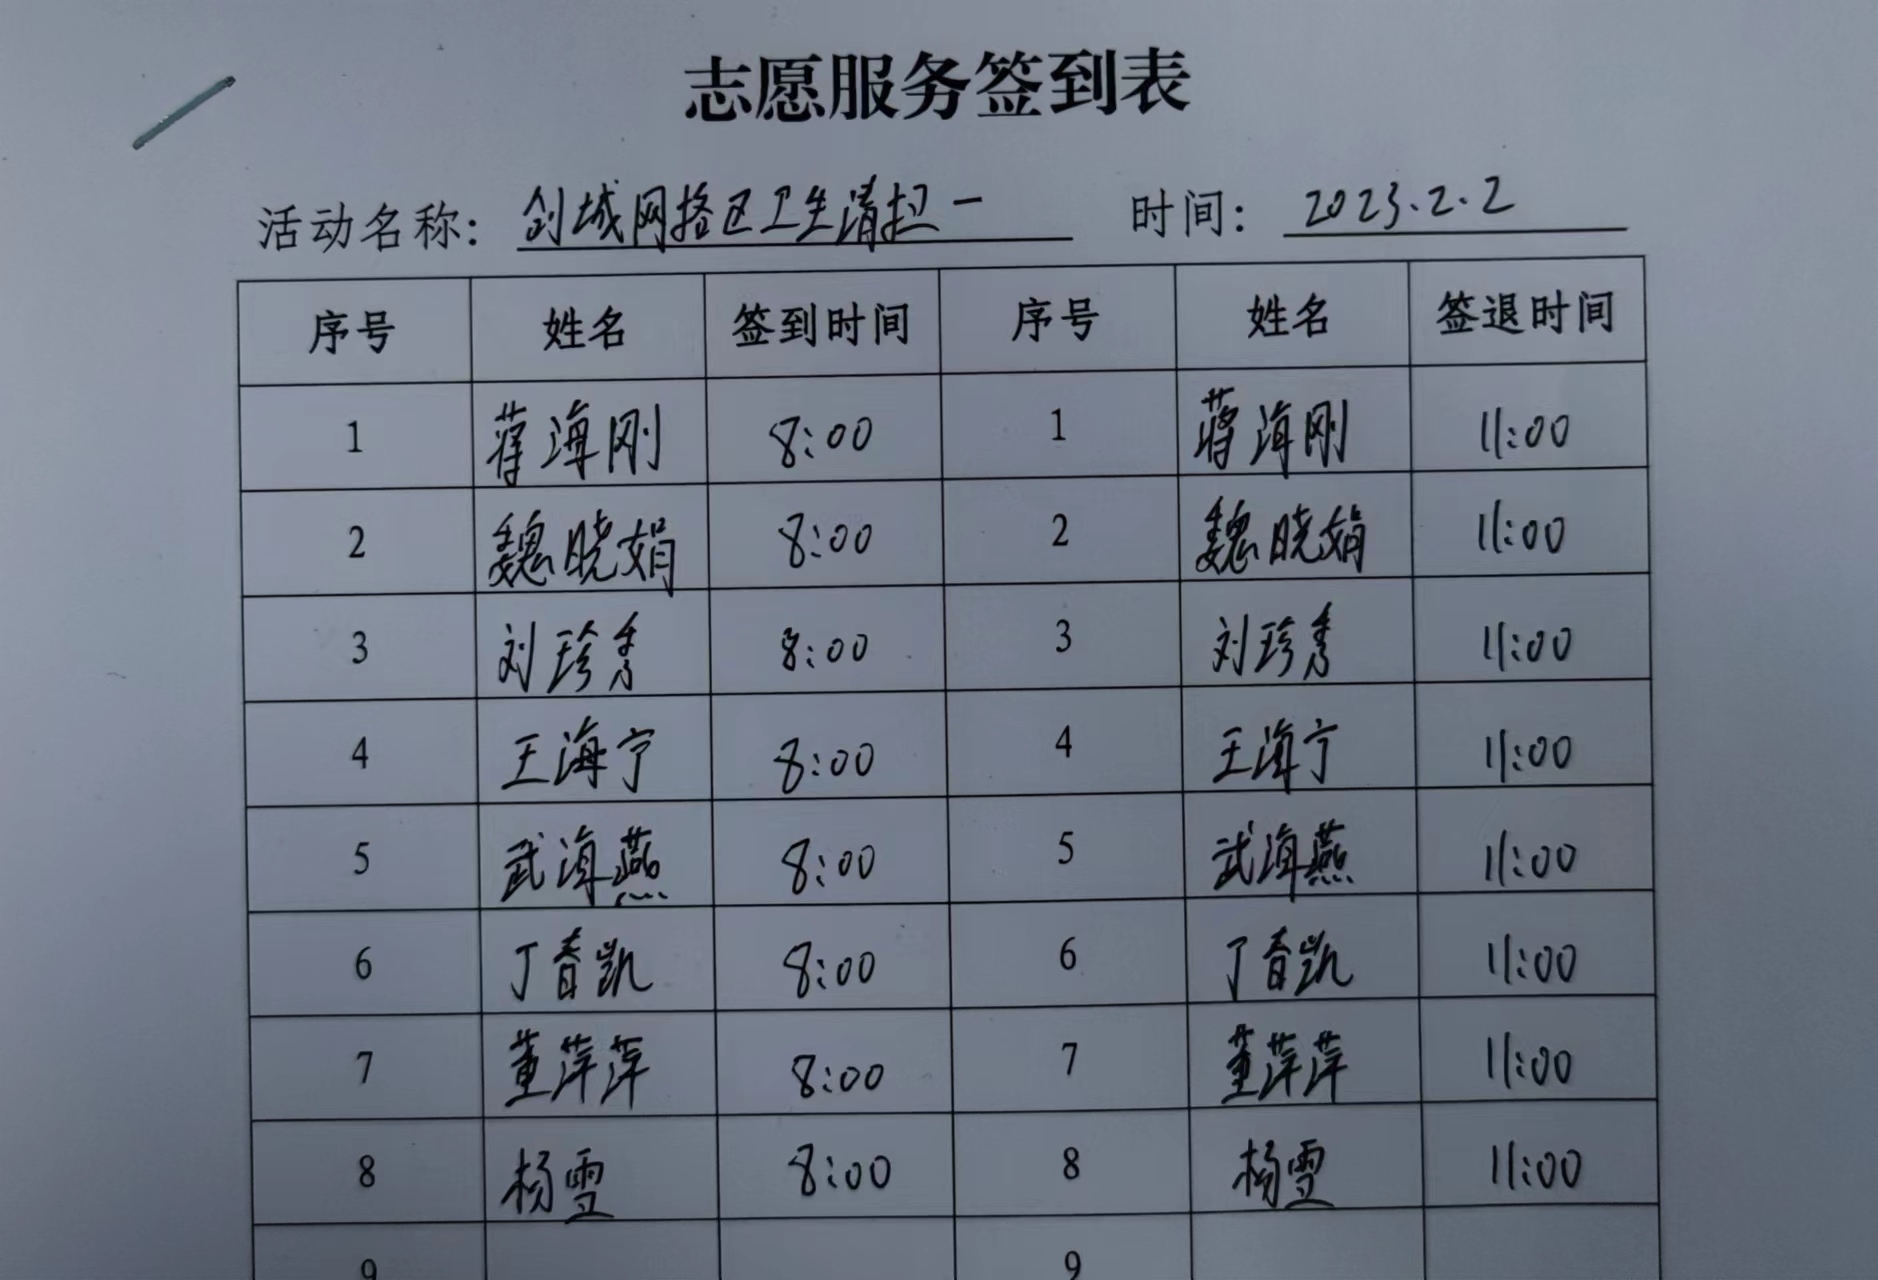 志愿服务签到表
活动名称：创城网格区卫生清扫一 时间：2023.2.2
序号 姓名 签到时间 序号 姓名 签退时间
1 蒋海刚 8:00 1 蒋海刚 11:00
2 魏晓娟 8:00 2 魏晓娟 11:00
3 刘珍秀 8:00 3 刘珍秀 11:00
4 王海宁 8:00 4 王海宁 11:00
5 武海燕 8:00 5 武海燕 11:00
6 丁春凯 8:00 6 丁春凯 11:00
7 董萍萍 8:00 7 董萍萍 11:00
8 杨雪 8:00 8 杨雪 11:00
9 9